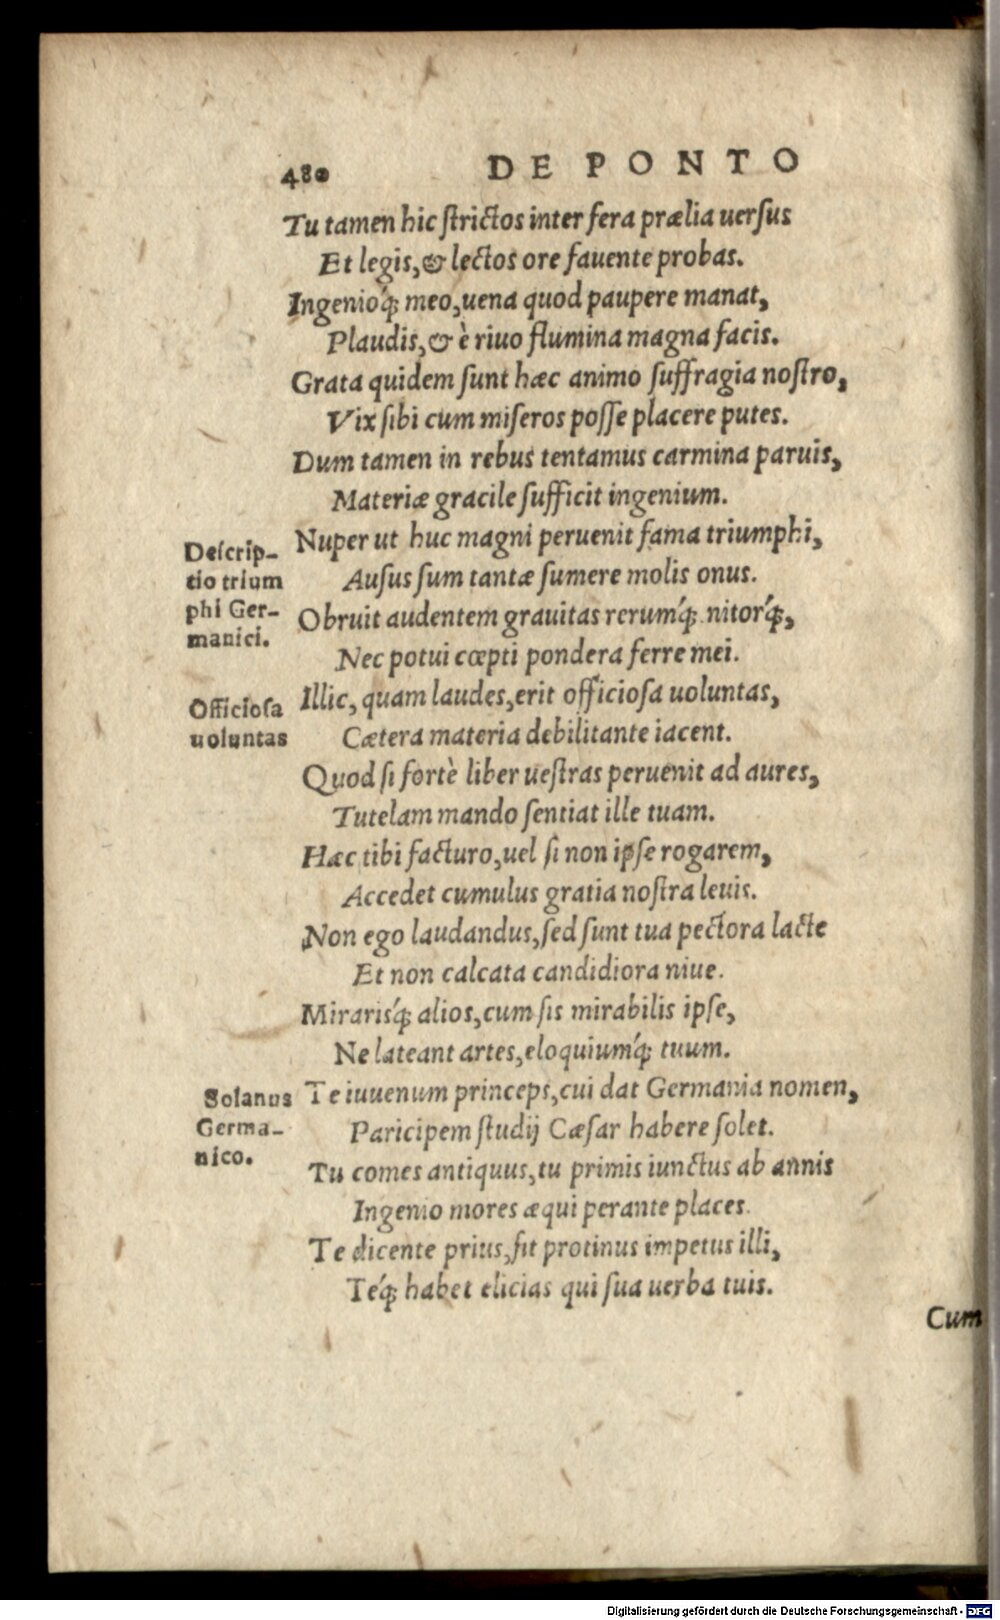 480 DE PONTO
Tu tamen hic ſtrictos inter fera prælia uerſus
Et legis, & lectos ore fauente probas.
Ingenioq́; meo, uena quod paupere manat,
Plaudis, & è riuo flumina magna facis.
Grata quidem ſunt hæc animo ſuffragia noſtro,
Vix ſibi cum miſeros poſſe placere putes.
Dum tamen in rebus tentamus carmina paruis,
Materiæ gracile ſufficit ingenium.
Nuper ut huc magni peruenit fama triumphi,
Auſus ſum tantæ ſumere molis onus.
Obruit audentem grauitas rerumq́; nitorq́;,
Nec potui cœpti pondera ferre mei.
Illic, quam laudes, erit officioſa uoluntas,
Cætera materia debilitante iacent.
Quod ſi fortè liber ueſtras peruenit ad aures,
Tutelam mando ſentiat ille tuam.
Hæc tibi facturo, uel ſi non ipſe rogarem,
Accedet cumulus gratia noſtra leuis.
Non ego laudandus, ſed ſunt tua pectora lacte
Et non calcata candidiora niue.
Mirarisq́; alios, cum ſis mirabilis ipſe,
Ne lateant artes, eloquiumq́; tuum.
Te iuuenum princeps, cui dat Germania nomen,
Paricipem ſtudij Cæſar habere ſolet.
Tu comes antiquus, tu primis iunctus ab annis
Ingenio mores æqui perante places.
Te dicente prius, fit protinus impetus illi,
Teq́; habet elicias qui ſua uerba tuis.
Cum
Deſcrip-
tio trium
phi Ger-
manici.
Officioſa
uoluntas
Solanus
Germa-
nico.
Digitalisierung gefördert durch die Deutsche Forschungsgemeinschaft - DFG